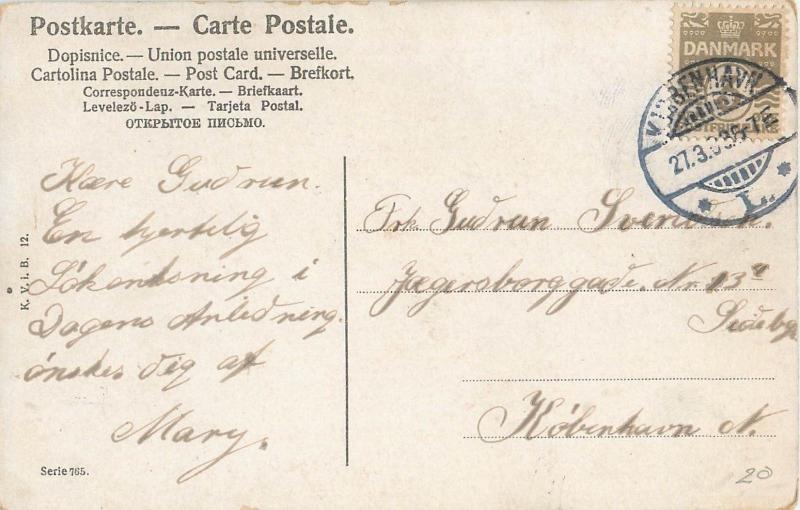 Postkarte. — Carte Postale.
Dopisnice. — Union postale universelle.
Cartolina Postale. — Post Card. — Brefkort.
Correspondenz-Karte. — Briefkaart.
Levelező-Lap. — Tarjeta Postal.
ОТКРЫТОЕ ПИСЬМО.
DANMARK
KJØBENHAVN
27.3.
L.
Kære Gudrun.
En hjertelig
Lÿkønskning i
Dagens Anledning.
ønskes dig af
Mary.
Frk. Gudrun Svendsen.
Jægersborggade. Nr. 13
København N.
K. V. i. B. 12.
Serie 765.
20